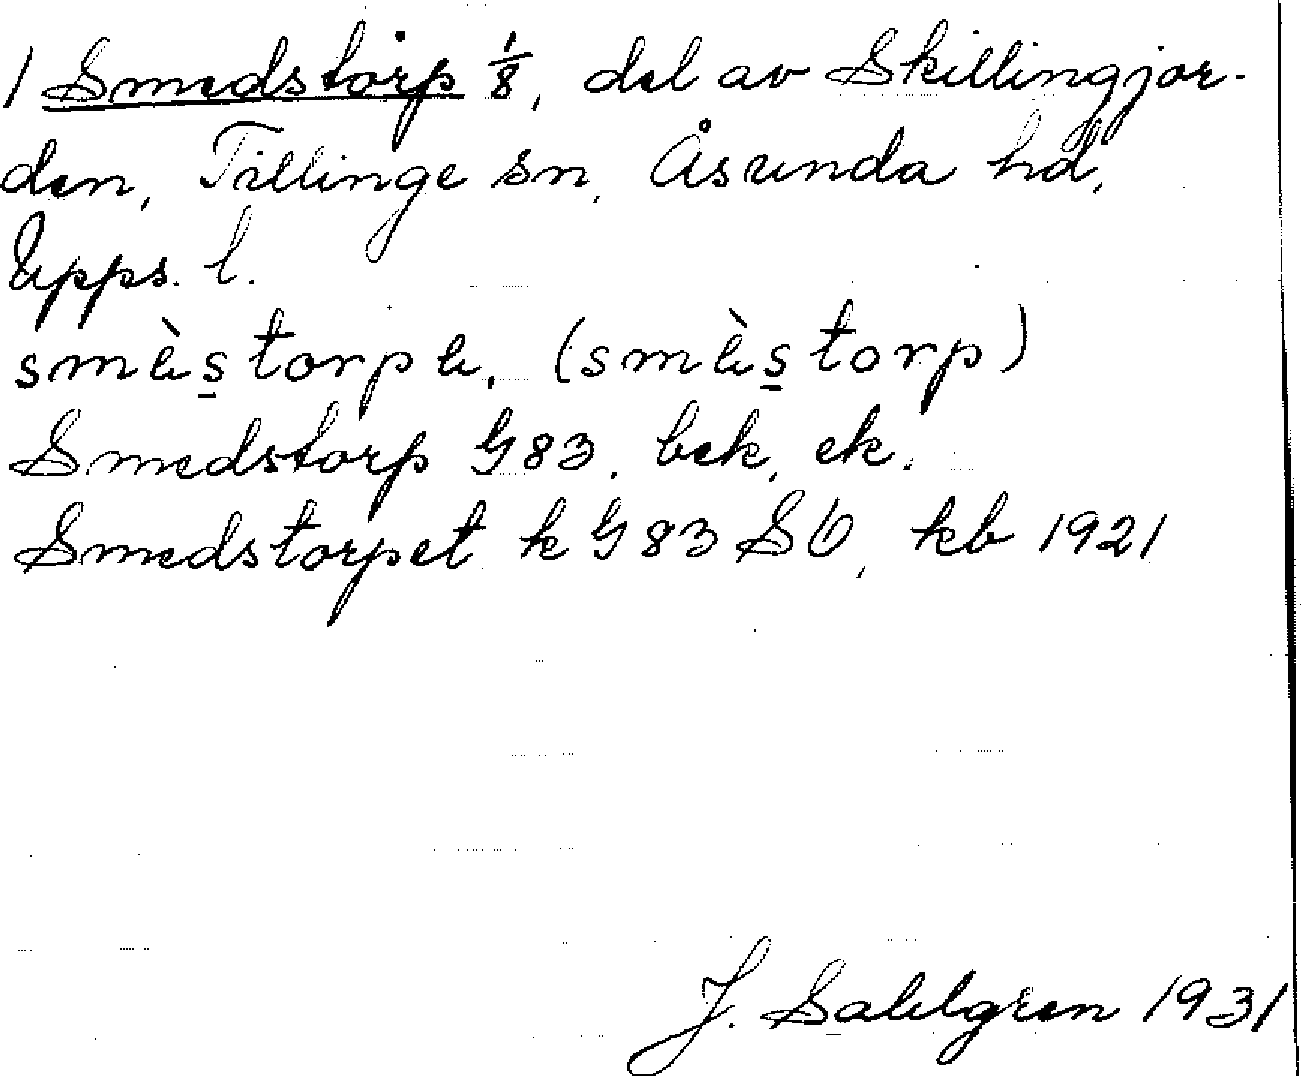 1 Smedstorp 1/8, del av Skillingjor-
den, Tillinge sn, Åsunda hd,
Upps. l.
smèstorpe, (smèstorp)
Smedstorp G83, bek, ek.
Smedstorpet k G83 SV, kb 1921
J. Sahlgren 1931